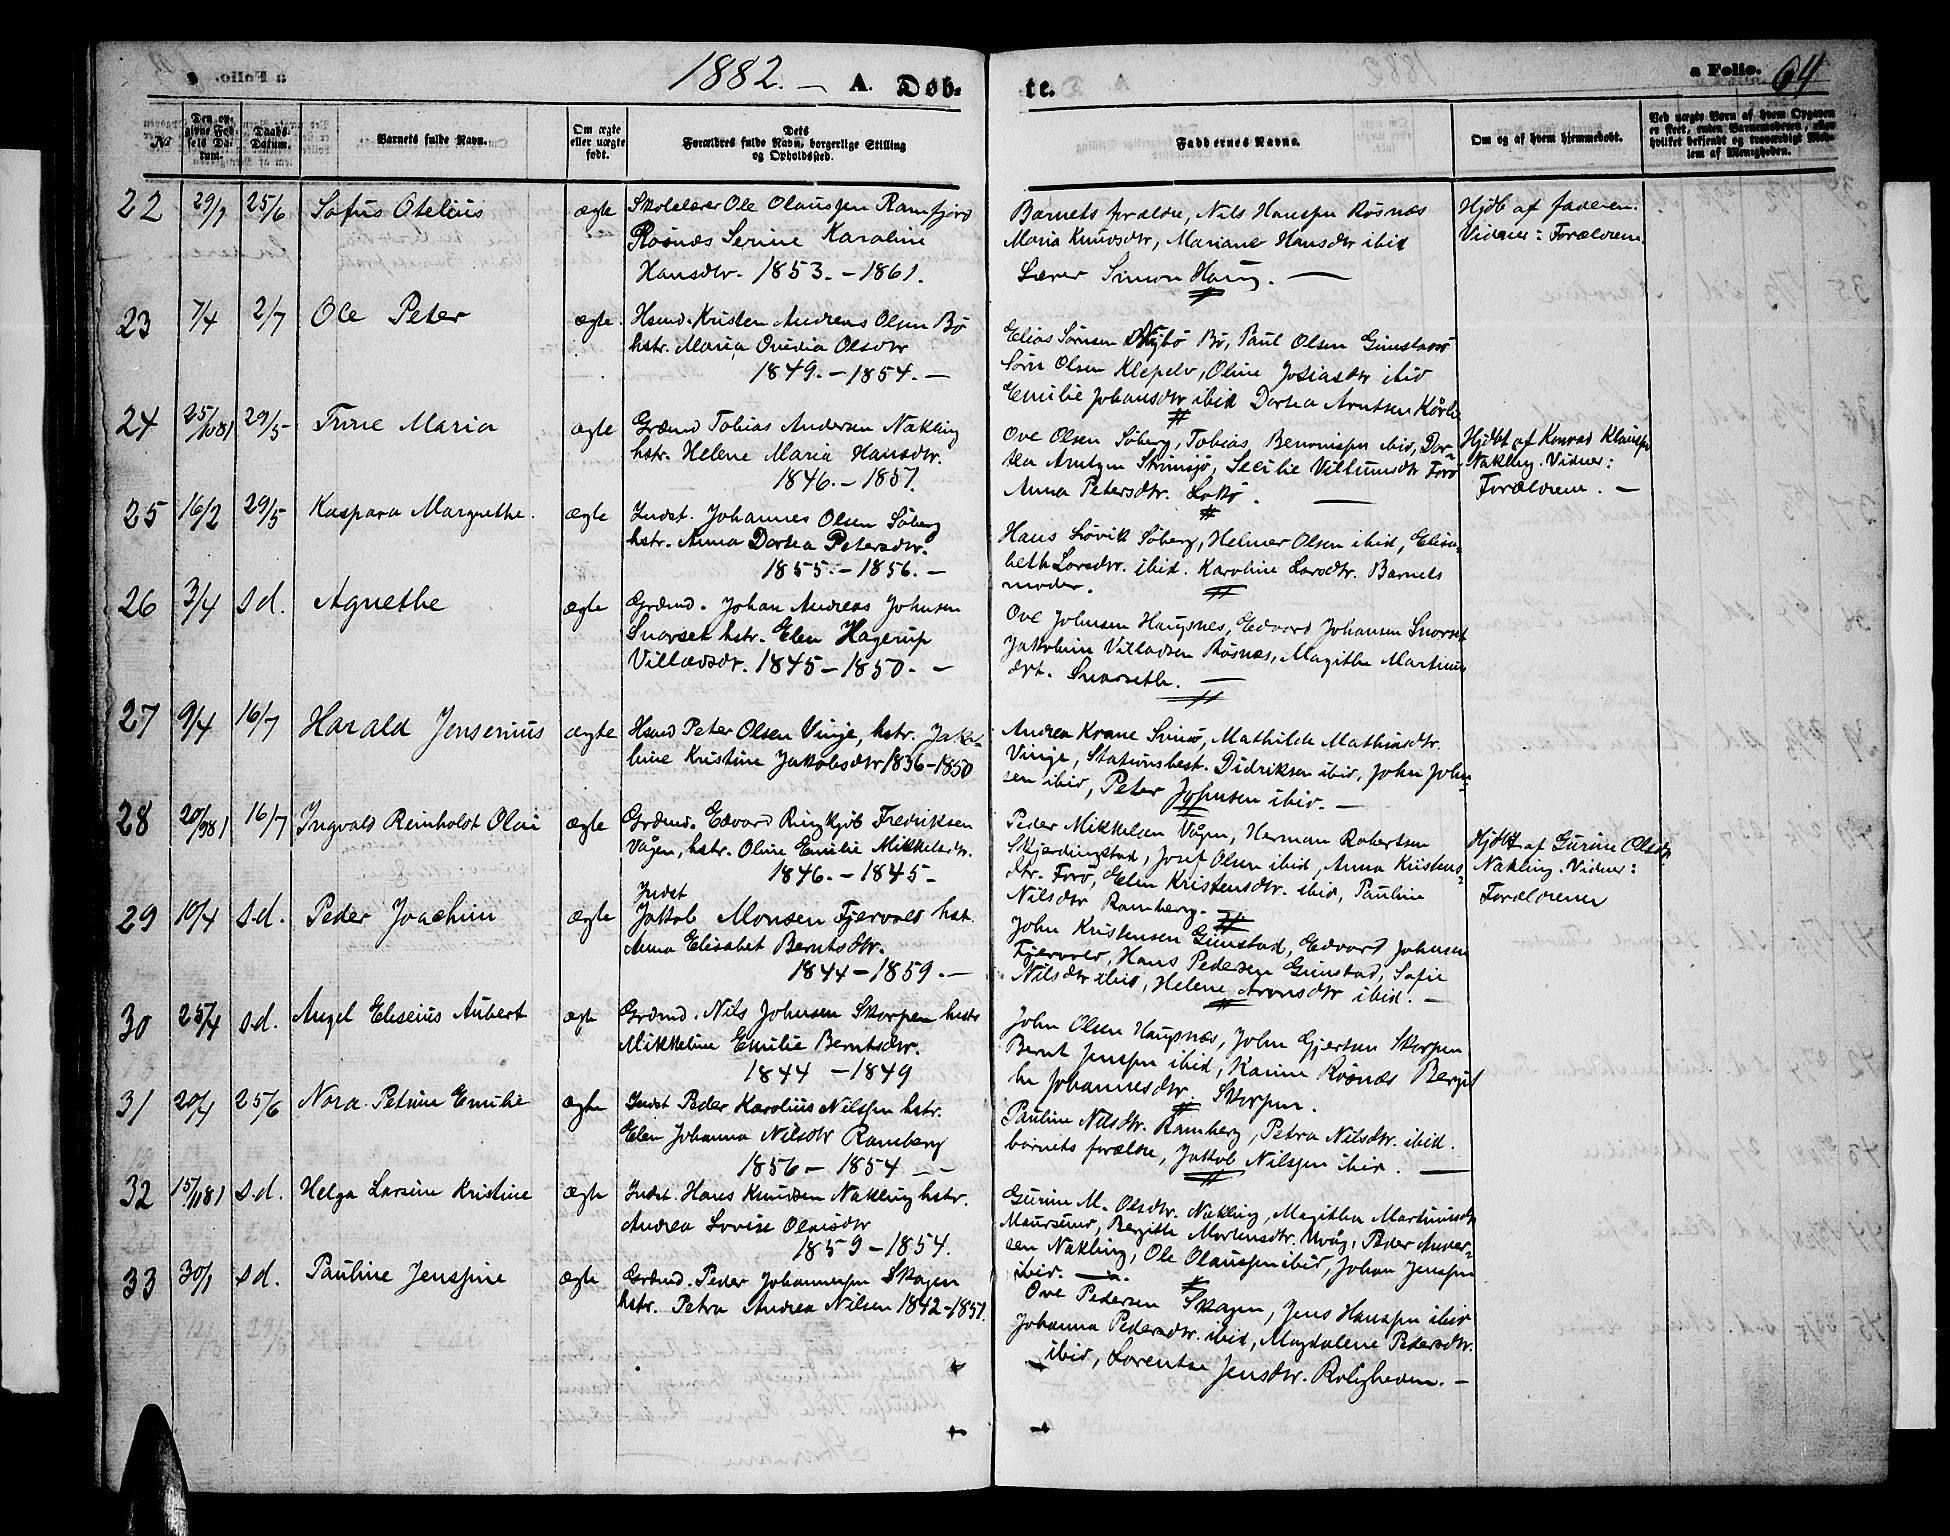 1882. — A. Døb-
te.
a Folio. 64
№
Den opgivne Fødsels Datum.
Daabs-Datum.
Barnets fulde Navn.
Om ægte eller uægte født.
Dets Forældres fulde Navn, borgerlige Stilling og Opholdssted.
Faddernes Navne.
Om og af hvem hjemmedøbt.
22 29/1 25/6 Sofus Otelius ægte
Skolelærer Ole Olaussen Ramfjord
Rosnæs Serine Karoline
Hansdtr. 1853. – 1861.
Barnets forældre, Nils Hanssen Rosnæs
Maria Knudsdtr, Mariane Hansdtr ibid
Lærer Simon Haug. —
Hjdb af faderen.
Vidner: Forældrene.
23 7/4 2/7 Ole Peter ægte.
Hsmd. Kristen Andreas Olsen Bø
hstr. Maria Ovidia Olsdtr
1849. – 1854. –
Elias Sørensen Nybø Bø, Paul Olsen
Sørn Olsen Klepelv, Oline Josiasdtr ibid
Emilie Johansdtr ibid Dortea Arntsen
24 25/10 81 29/5 Trine Maria ægte
Grdmd Tobias Andersen Nakling
hstr. Helene Maria Hansdtr.
1846. – 1857.
Ove Olsen Søberg, Tobias ibid, Dor-
tea Arntzen Skrinsjø, Secilie Forø
Anna Petersdtr. —
Hjdbt af Konrad
Nakling. Vidner:
Forældrene. –
25 16/2 29/5 Kaspara Margrethe. ægte
Indst. Johannes Olsen Søberg
hstr. Anna Dortea Petersdtr.
1855. – 1856. –
Hans Løvik Søberg, Helmer Olsen ibid, Elisa-
beth Larsdtr. ibid. Karoline Larsdtr. Barnets
moder.
26 3/4 s.d. Agnethe ægte
Grdmd. Johan Andreas Johnsen
Snorset hstr. Elen Hagerup
Villadsdtr. 1845 – 1850. –
Ove Johnsen Haugsnes, Edvard Johansen Snorset
Jakobine Villadsen Rosnæs, Magithe Martinus
dtr. Snorseth. —
27 9/4 16/7 Harald Jensenius ægte
Hsmd Peter Olsen Vinje, hstr. Jako-
bine Kristine Jakobsdtr 1836–1850
Andrea Krane Smines, Mathilde Mathiasdtr.
Vinje, Stationsbest. Didriksen ibid, John John-
sen ibid, Peter Johnsen ibid. –
28 20/9 81 16/7 Ingvald Reinholdt Olai ægte
Grdmd. Edvard Ringkjøb Fredriksen
Vågen, hstr. Oline Emilie Mikkelsdtr.
1846. – 1845 –
Peder Mikkelsen Vågen, Herman Robertsen
Skjerdingstad, Josef Olsen ibid, Anna Kristens-
dtr. Forø, Elen Kristensdtr. ibid, Pauline
Nilsdtr Ramberg. –
Hjdbt af Gurine Olsdtr
Nakling. Vidner:
Forældrene
29 10/4 s.d. Peder Joachim ægte
Indst
Jakob Monsen Fjervold hst.
Anna Elisabet Berntsdtr.
1844 – 1859. –
John Kristensen Gimstad, Edvard Johnsen
Fjervold, Hans Pedersen Gimstad, Sofie
Nilsdtr ibid, Helene Aronsdtr ibid. –
30 25/4 s.d. Angel Eliseius Aubert ægte
Grdmd. Nils Johnsen Skorpen hstr
Mikkeline Emilie Berntsdtr.
1844 – 1849
John Olsen Haugsnæs, John Gjertsen Skorpen
Bernt Jenssen ibid, Karine Rosnæs Bergit
he Johannesdtr. Skorpen.
31 20/4 25/6 Nora Petrine Emilie ægte
Indst Peder Karolius Nilssen hstr.
Elen Johanna Nilsdtr Ramberg
1856 – 1854 – –
Pauline Nilsdtr. Ramberg, Petra Nilsdtr. ibid.
barnets forældre, Jakob Nilssen ibid. —
32 15/11 81 s.d. Helga Larsine Kristine ægte
Indst. Hans Knudsen Nakling hstr.
Andrea Lovise Olaisdtr
1859 – 1854.
Gurine M. Olsdtr. Nakling, Magithea Martinusdtr
Maursund, Bergitte Mortensdtr. Uvåg, Peder Ander-
sen Nakling, Ole Olaussen ibid, Johan Jenssen
ibid. —
33 30/1 s.d. Pauline Jenssine ægte
Grdmd. Peder Johannessen Skagen
hstr. Petra Andrea Nilsen 1842–1851.
Ove Pedersen Skagen, Jens Hanssen ibid
Johanna Pedersdtr. ibid, Magdalene Pedersdtr.
ibid, Lorentse Jensdtr. Roligheden. –